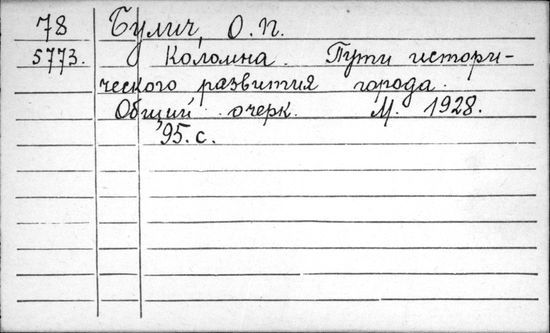 78 Булич, О.П.
5773. Коломна. Пути истори-
ческого развития города.
Общий очерк. М. 1928.
95. с.